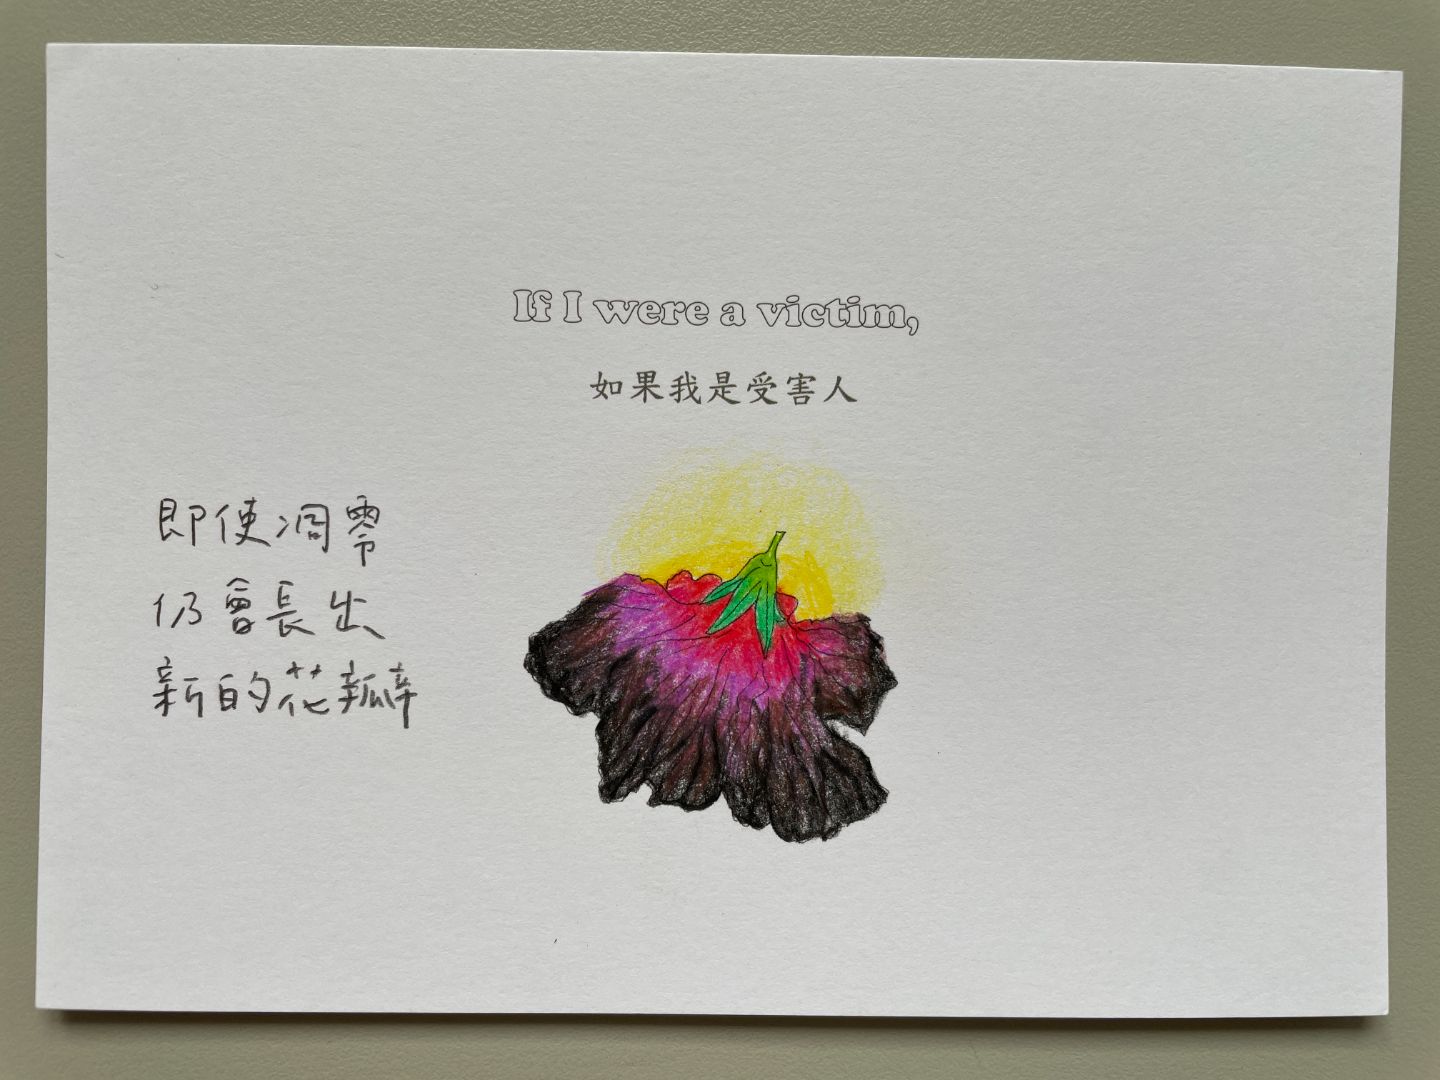 If I were a victim,
如果我是受害人
即使凋零
仍會長出
新的花瓣